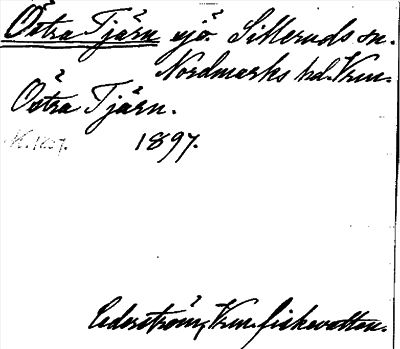 Östra Tjärn sjö Silleruds sn.
Nordmarks hd. Vrm.
Östra Tjärn.
1897.
Cederström, Vrm. fiskevatten.